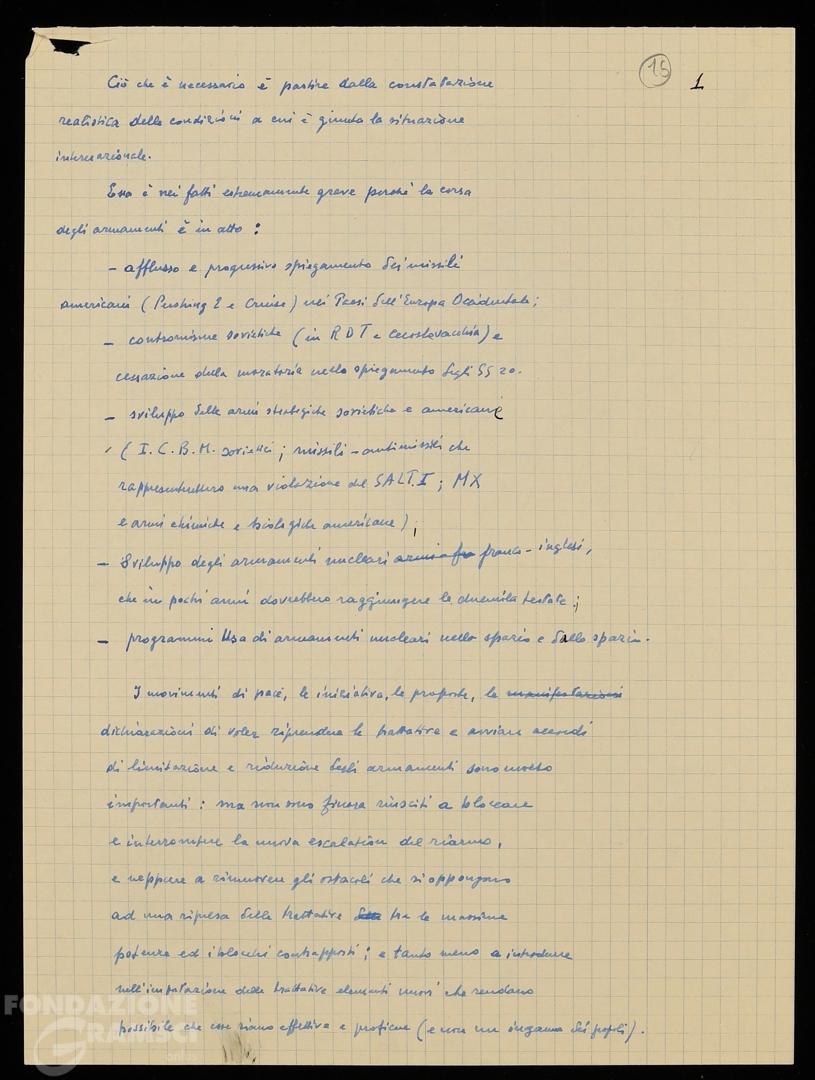 16 1
Ciò che è necessario è partire dalla constatazione
realistica delle condizioni a cui è giunta la situazione
internazionale.
Essa è nei fatti estremamente grave perché la corsa
degli armamenti è in atto :
- afflusso e progressivo spiegamento dei missili
americani ( Pershing 2 e Cruise ) nei Paesi dell'Europa Occidentale ;
- contromisure sovietiche ( in RDT e Cecoslovacchia ) e
cessazione della moratoria nello spiegamento degli SS 20.
- sviluppo delle armi strategiche sovietiche e americane
( I.C.B.M. sovietici ; missili - antimissili che
rappresenterebbero una violazione del SALT.I ; MX
e armi chimiche e biologiche americane ) ;
- Sviluppo degli armamenti nucleari armi fra franco - inglesi,
che in pochi anni dovrebbero raggiungere le duemila testate ;
- programmi Usa di armamenti nucleari nello spazio e dallo spazio.
I movimenti di pace, le iniziative, le proposte, le manifestazioni
dichiarazioni di voler riprendere le trattative e avviare accordi
di limitazione e riduzione degli armamenti sono molto
importanti : ma non sono finora riusciti a bloccare
e interrompere la nuova escalation del riarmo,
e neppure a rimuovere gli ostacoli che si oppongono
ad una ripresa delle trattative tra le massime
potenze ed i blocchi contrapposti ; e tanto meno a introdurre
nell'impostazione delle trattative elementi nuovi che rendano
possibile che esse siano effettive e proficue ( e non un inganno dei popoli ).
FONDAZIONE
GRAMSCI
onlus